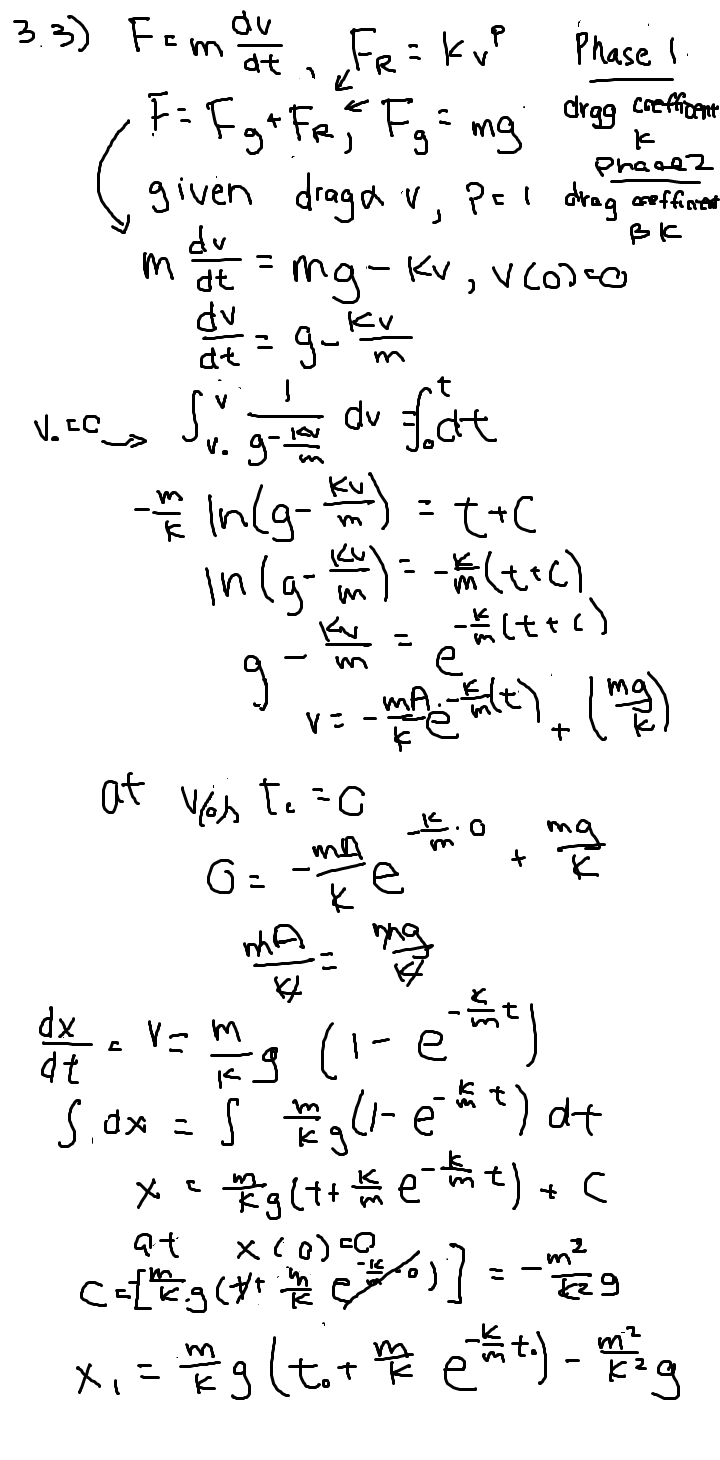 3.3) F = m dv/dt , F_R = Kv^P Phase 1
F = F_g + F_R, F_g = mg dragg coefficent K
Phase 2
given drag α v, P = 1 drag coefficent βK
m dv/dt = mg - Kv, v(0) = 0
dv/dt = g - Kv/m
v₀ = 0 → ∫_{v₀}^{v} 1/(g - Kv/m) dv = ∫_0^t dt
-m/K ln(g - Kv/m) = t + C
ln(g - Kv/m) = -K/m (t + C)
g - Kv/m = e^{-K/m (t + C)}
v = -mA/K · e^{-K/m (t)} + (mg/K)
at t₀ = 0
0 = -mA/K e^{-K/m · 0} + mg/K
mA/K = mg/K
dx/dt = v = m/K g (1 - e^{-K/m t})
∫ dx = ∫ m/K g (1 - e^{-K/m t}) dt
x = m/K g (t + K/m e^{-K/m t}) + C
at x(0) = 0
C = [m/K g (t + m/K e^{-K/m · 0})] = -m²/K² g
x₁ = m/K g (t₀ + m/K e^{-K/m t₀}) - m²/K² g